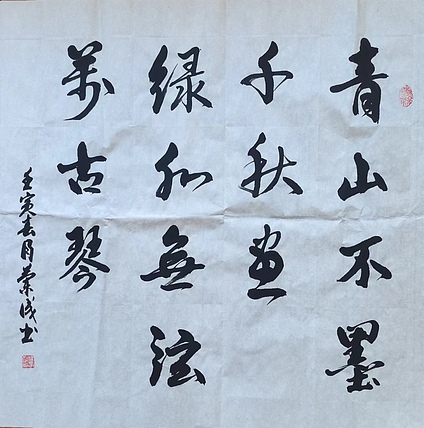 青山不墨
千秋画
绿水無弦
萬古琴
壬寅春月榮成书